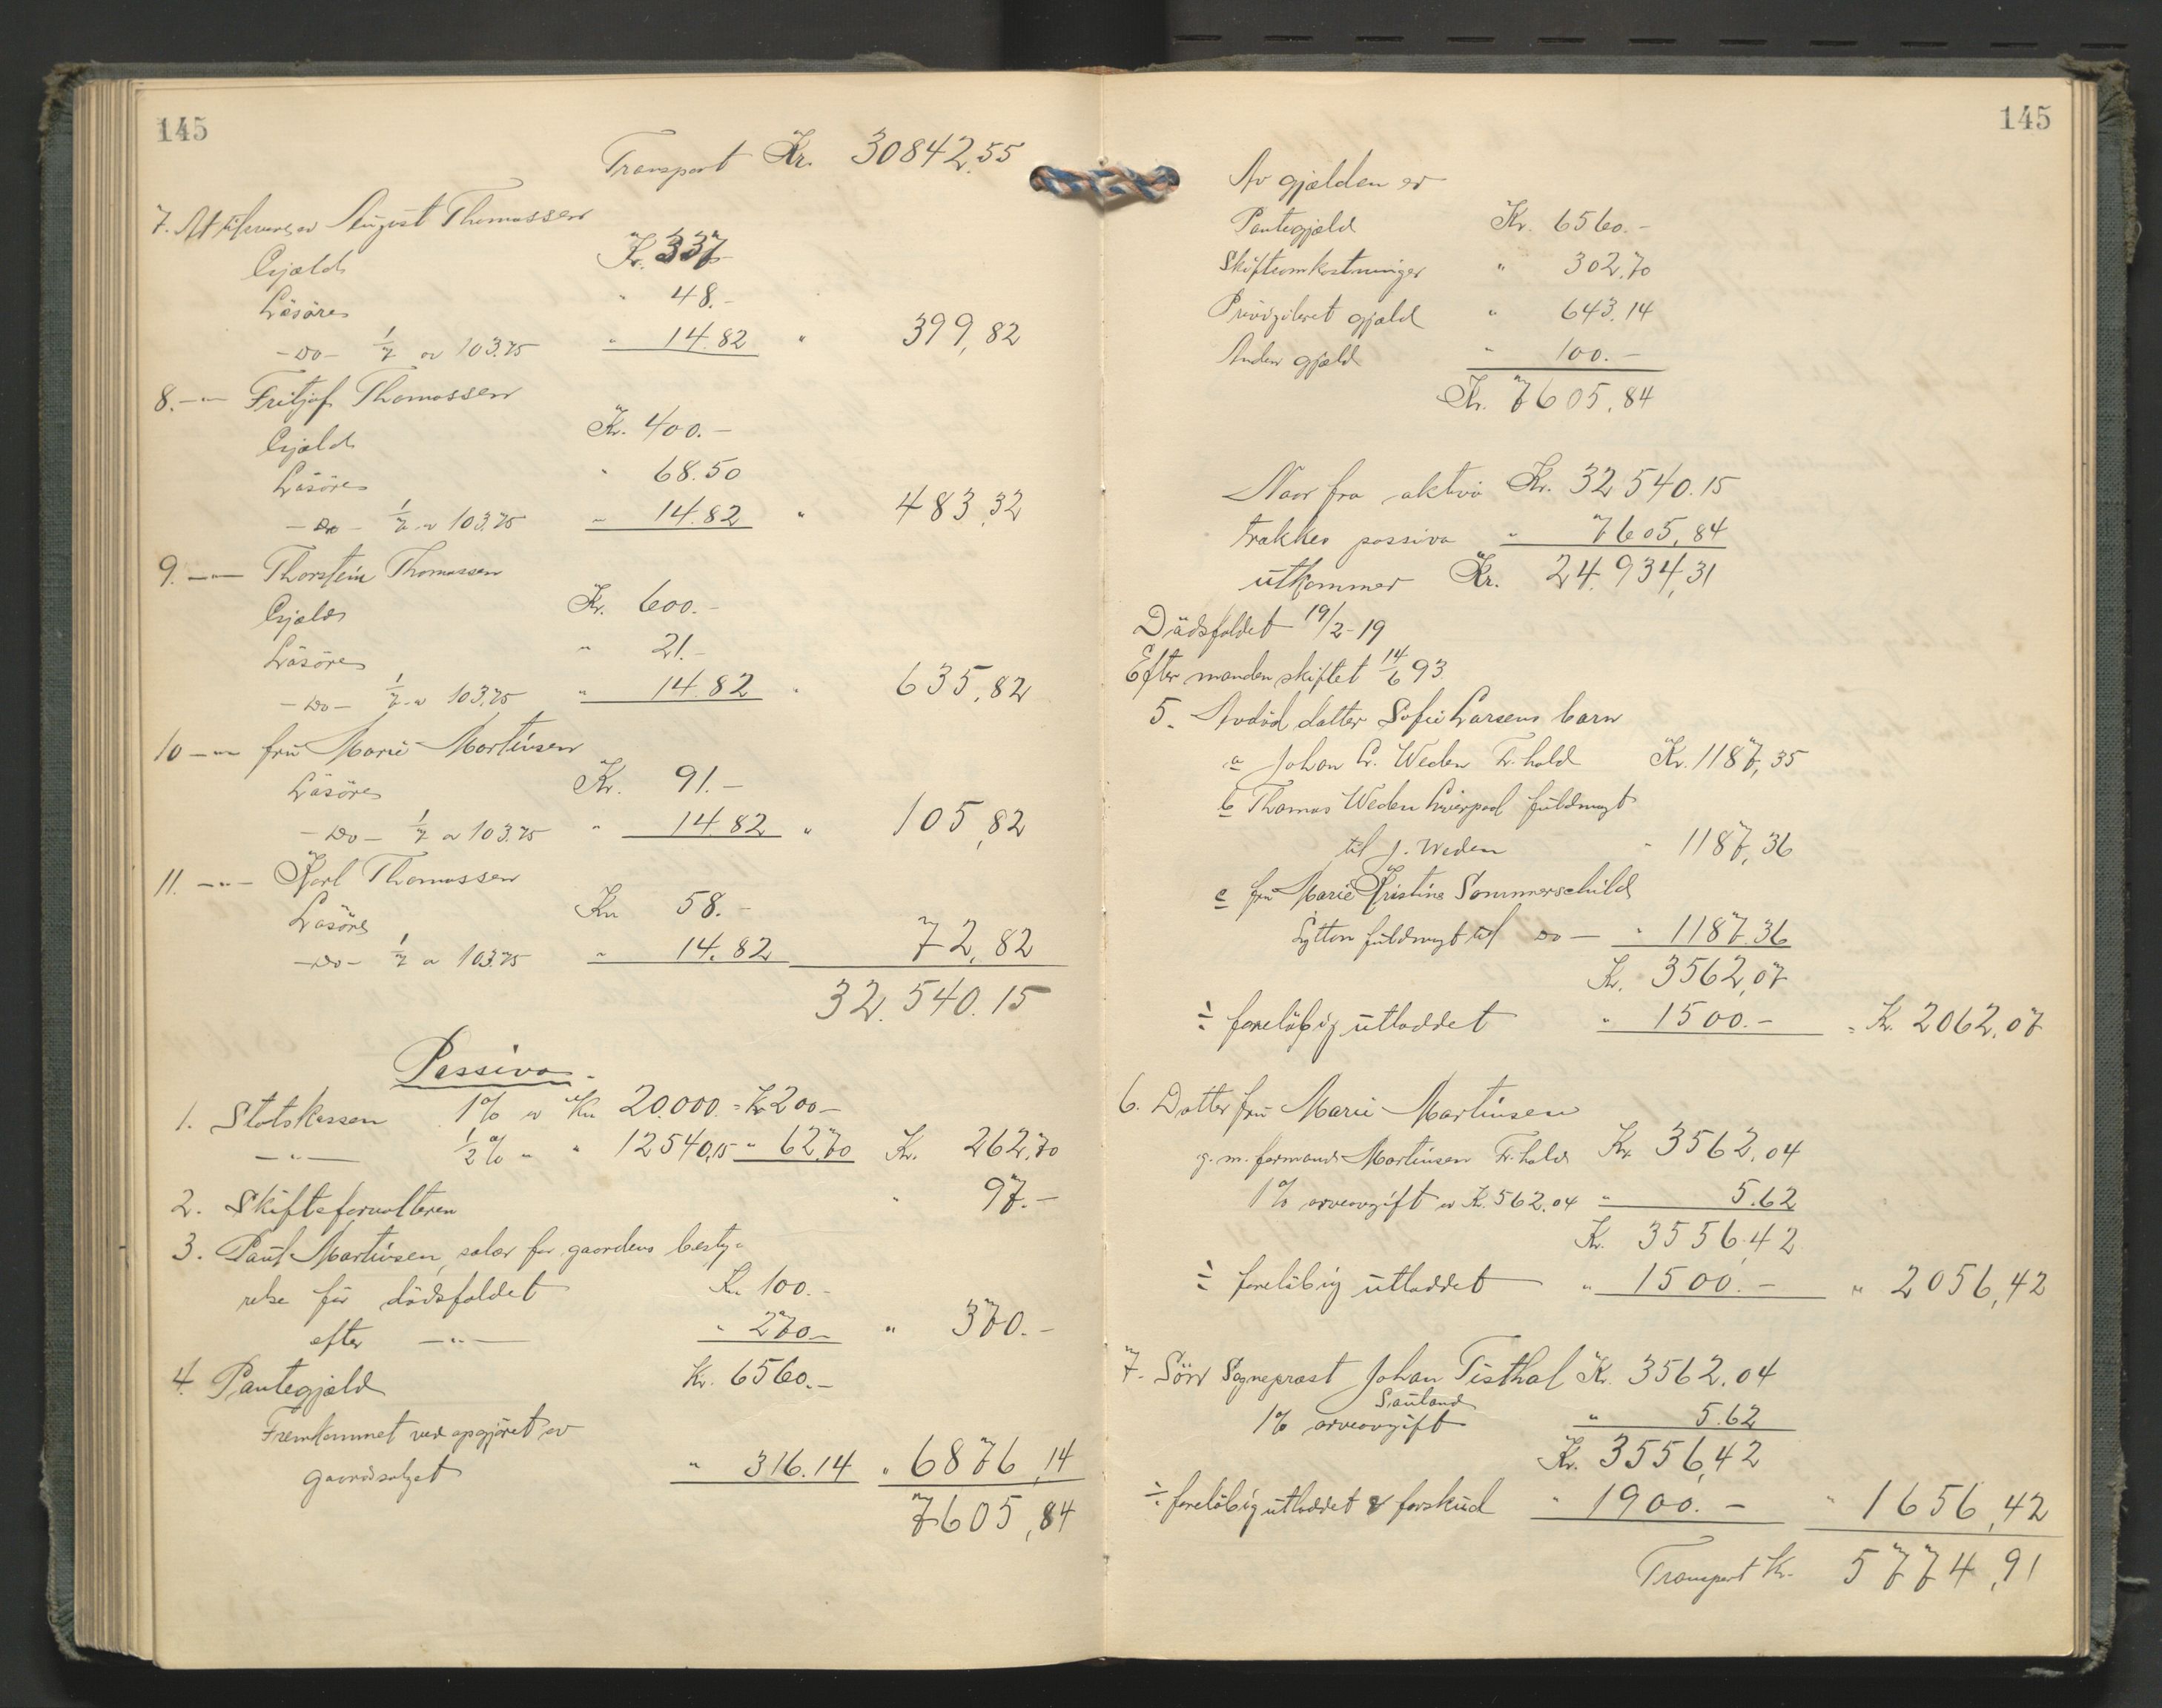 145
Transport Kr. 30842,55
7. At August Thomassen
Gjæld Kr. 337
Løsøre " 48.-
-Do- 1/7 av 103.75 " 14.82 " 399,82
8. -"- Fritjof Thomassen
Gjæld Kr. 400.-
Løsøre " 68.50
-Do- 1/7 av 103.75 " 14.82 " 483,32
9. -"- Thorstein Thomassen
Gjæld Kr. 600.-
Løsøre " 21.-
-Do- 1/7 av 103.75 " 14.82 " 635,82
10 -"- fru Marie Martinsen
Løsøre Kr. 91.-
-Do- 1/7 av 103.75 " 14.82 " 105,82
11. -"- Karl Thomassen
Løsøre Kr. 58.-
-Do- 1/7 av 103.75 " 14.82 72,82
32.540.15
Passiva.
1. Statskassen 1% av Kr. 20.000.- Kr 200-
-"- 1/2% " " 12540,15 " 62.70 Kr. 262,70
2. Skifteforvalteren " 97.-
3. Paul Martinsen, salær for gaardens besty-
relse før dødsfaldet Kr. 100.-
efter -"- " 270.- " 370.-
4. Pantegjæld Kr. 6560.-
Fremkommet ved opgjøret av
gaardsalget " 316.14 " 6876,14
7605,84
145
Av gjælden er
Pantegjæld Kr. 6560.-
Skifteomkostninger " 302,70
Privigileret gjæld " 643.14
Anden gjæld " 100.-
Kr. 7605,84
Naar fra aktiva Kr. 32540.15
trækkes passiva " 7605,84
utkommer Kr. 24.934,31
Dødsfaldet 19/2-19
Efter manden skiftet 14/6 93
5. Avdød datter Sofie Larsens barn
a Johan L. Weden F.hald Kr. 1187,35
b Thomas Weden Liverpool fuldmagt
til J. Weden " 1187,36
c fru Marie Kristine Sommerschild
Lytton fuldmagt til Do- " 1187.36
Kr. 3562,07
÷ foreløbig utloddet " 1500.- = Kr. 2062,07
6. Datter fru Marie Martinsen
g. m. formand Martinsen Fr.hald Kr. 3562,04
1% arveavgift av Kr. 562.04 " 5.62
Kr. 3556.42
÷ foreløbig utloddet " 1500.- " 2056,42
7. Søn Sogneprest Johan Tisthal Kr. 3562.04
Sauland
1% arveavgift " 5.62
Kr. 3556,42
÷ foreløbig utloddet & forskud " 1900.- " 1656,42
Transport Kr. 5774,91